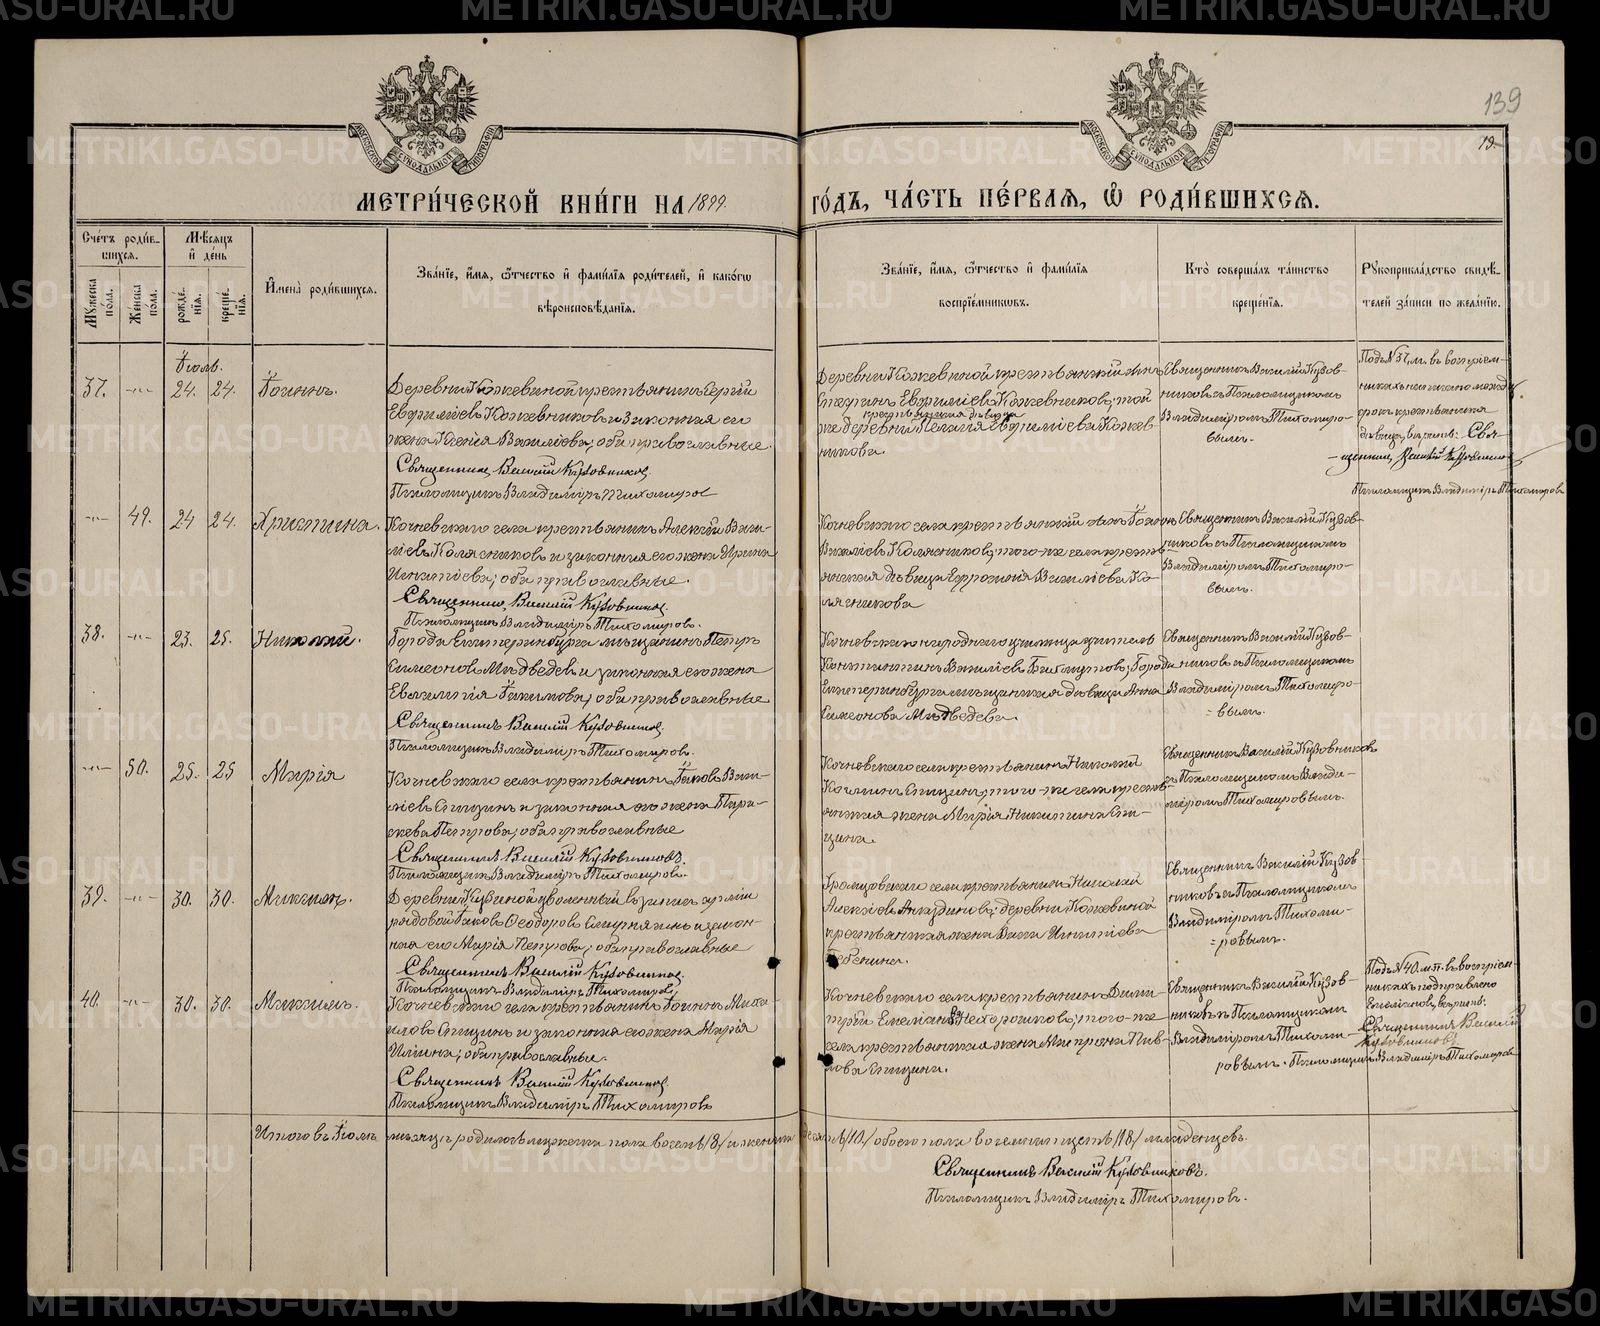 METRIKI.GASO-URAL.RU
139
19.
МОСКОВСКОЙ СѴНОДАЛЬНОЙ ТИПОГРАФІИ
МОСКОВСКОЙ СѴНОДАЛЬНОЙ ТИПОГРАФІИ
МЕТРИ́ЧЕСКОЙ КНИ́ГИ НА 1899. ГО́ДЪ, ЧА́СТЬ ПЕ́РВАЯ, Ѡ҆ РОДИ́ВШИХСЯ.
Сче́тъ роди́в-
шихся.
Мꙋжеска по́ла.
Же́нска по́ла.
Мѣсяцъ
и҆ де́нь
рожде́нїя.
креще́нїя.
И҆мена̀ роди́вшихся.
Зва́нїе, и҆́мя, ѻ҆́тчество и҆ фами́лїя роди́телей, и҆ како́гѡ
вѣроисповѣ́данїя.
Зва́нїе, и҆́мя, ѻ҆́тчество и҆ фами́лїя
воспрїе́мниковъ.
Кто̀ соверша́лъ та́инство
креще́нїя.
Рꙋкоприкла́дство свидѣ́-
телей за́писи по жела́нїю.
Іюль.
37. -"- 24. 24. Іоаннъ.
Деревни Кожевиной крестьянинъ Сергій
Евфиміевъ Кожевниковъ и законная его
жена Ксенія Василіева, оба православные.
Священникъ Василій Кузовниковъ.
Псаломщикъ Владиміръ Тихомировъ
Деревни Кожевиной крестьянскій сынъ
Евфиміевъ Кожевниковъ; той
крестьянская дѣвица
же деревни Пелагія Евфиміева Кожев-
никова.
Священникъ Василій Кузов-
никовъ съ Псаломщикомъ
Владиміромъ Тихомиро-
вымъ.
Подъ № 37. м. въ воспріем-
никахъ
крестьянская
дѣвица, вѣрить: Свя-
щенникъ Василій Кузовниковъ
Псаломщикъ Владиміръ Тихомировъ
-"- 49. 24 24. Христина.
Кочневскаго села крестьянинъ Алексій Васи-
ліевъ Колясниковъ и законная его жена Ирина
Игнатіева; оба православные.
Священникъ Василій Кузовниковъ.
Псаломщикъ Владиміръ Тихомировъ.
Кочневскаго села крестьянскій сынъ Іоаннъ
Василіевъ Колясниковъ; того-же села кресть-
янская дѣвица Евфросинія Василіева Ко-
лясникова
Священникъ Василій Кузов-
никовъ съ Псаломщикомъ
Владиміромъ Тихомиро-
вымъ.
38. -"- 23. 25. Николай.
Города Екатеринбурга мѣщанинъ Петръ
Симеоновъ Медвѣдевъ и законная его жена
Евлампія Іакимова; оба православные
Священникъ Василій Кузовниковъ.
Псаломщикъ Владиміръ Тихомировъ.
Кочневскаго народнаго училища учитель
Константинъ Василіевъ; Города
Екатеринбурга мѣщанская дѣвица Анна
Симеонова Медвѣдева.
Священникъ Василій Кузов-
никовъ съ Псаломщикомъ
Владиміромъ Тихомиро-
вымъ.
-"- 50. 25. 25 Марія
Кочневскаго села крестьянинъ Іаковъ Васи-
ліевъ Спицинъ и законная его жена Пара-
скева Петрова; оба православные
Священникъ Василій Кузовниковъ.
Псаломщикъ Владиміръ Тихомировъ.
Кочневскаго села крестьянинъ Николай
Спицинъ; того-же села кресть-
янская жена Марія Никитина Спи-
цина.
Священникъ Василій Кузовниковъ
съ Псаломщикомъ Влади-
міромъ Тихомировымъ.
39. -"- 30. 30. Максимъ.
Деревни уволенный въ запасъ арміи
рядовой Іаковъ Ѳеодоровъ и закон-
ная его Марія Петрова; оба православные
Священникъ Василій Кузовниковъ.
Псаломщикъ Владиміръ Тихомировъ
села крестьянинъ Николай
Алексіевъ; деревни Кожевиной
крестьянская жена Васса Игнатіева
Священникъ Василій Кузов-
никовъ съ Псаломщикомъ
Владиміромъ Тихоми-
ровымъ.
40. -"- 30. 30. Максимъ.
Кочневскаго села крестьянинъ Іоаннъ Миха-
иловъ Спицинъ и законная его жена Марія
оба православные.
Священникъ Василій Кузовниковъ.
Псаломщикъ Владиміръ Тихомировъ
Кочневскаго села крестьянинъ Дими-
трій; того-же
села крестьянская жена Матрона Пав-
лова Спицина.
Священникъ Василій Кузов-
никовъ съ Псаломщикомъ
Владиміромъ Тихоми-
ровымъ.
Подъ № 40. м. п. въ воспріем-
никахъ подправлено
вѣрить:
Священникъ Василій
Кузовниковъ
Псаломщикъ Владиміръ Тихомировъ
Итого въ Іюлѣ мѣсяцѣ родилось мужеска пола восемь /8/ и женска десять /10/ обоего пола восемнадцать /18/ младенцевъ.
Священникъ Василій Кузовниковъ.
Псаломщикъ Владиміръ Тихомировъ.